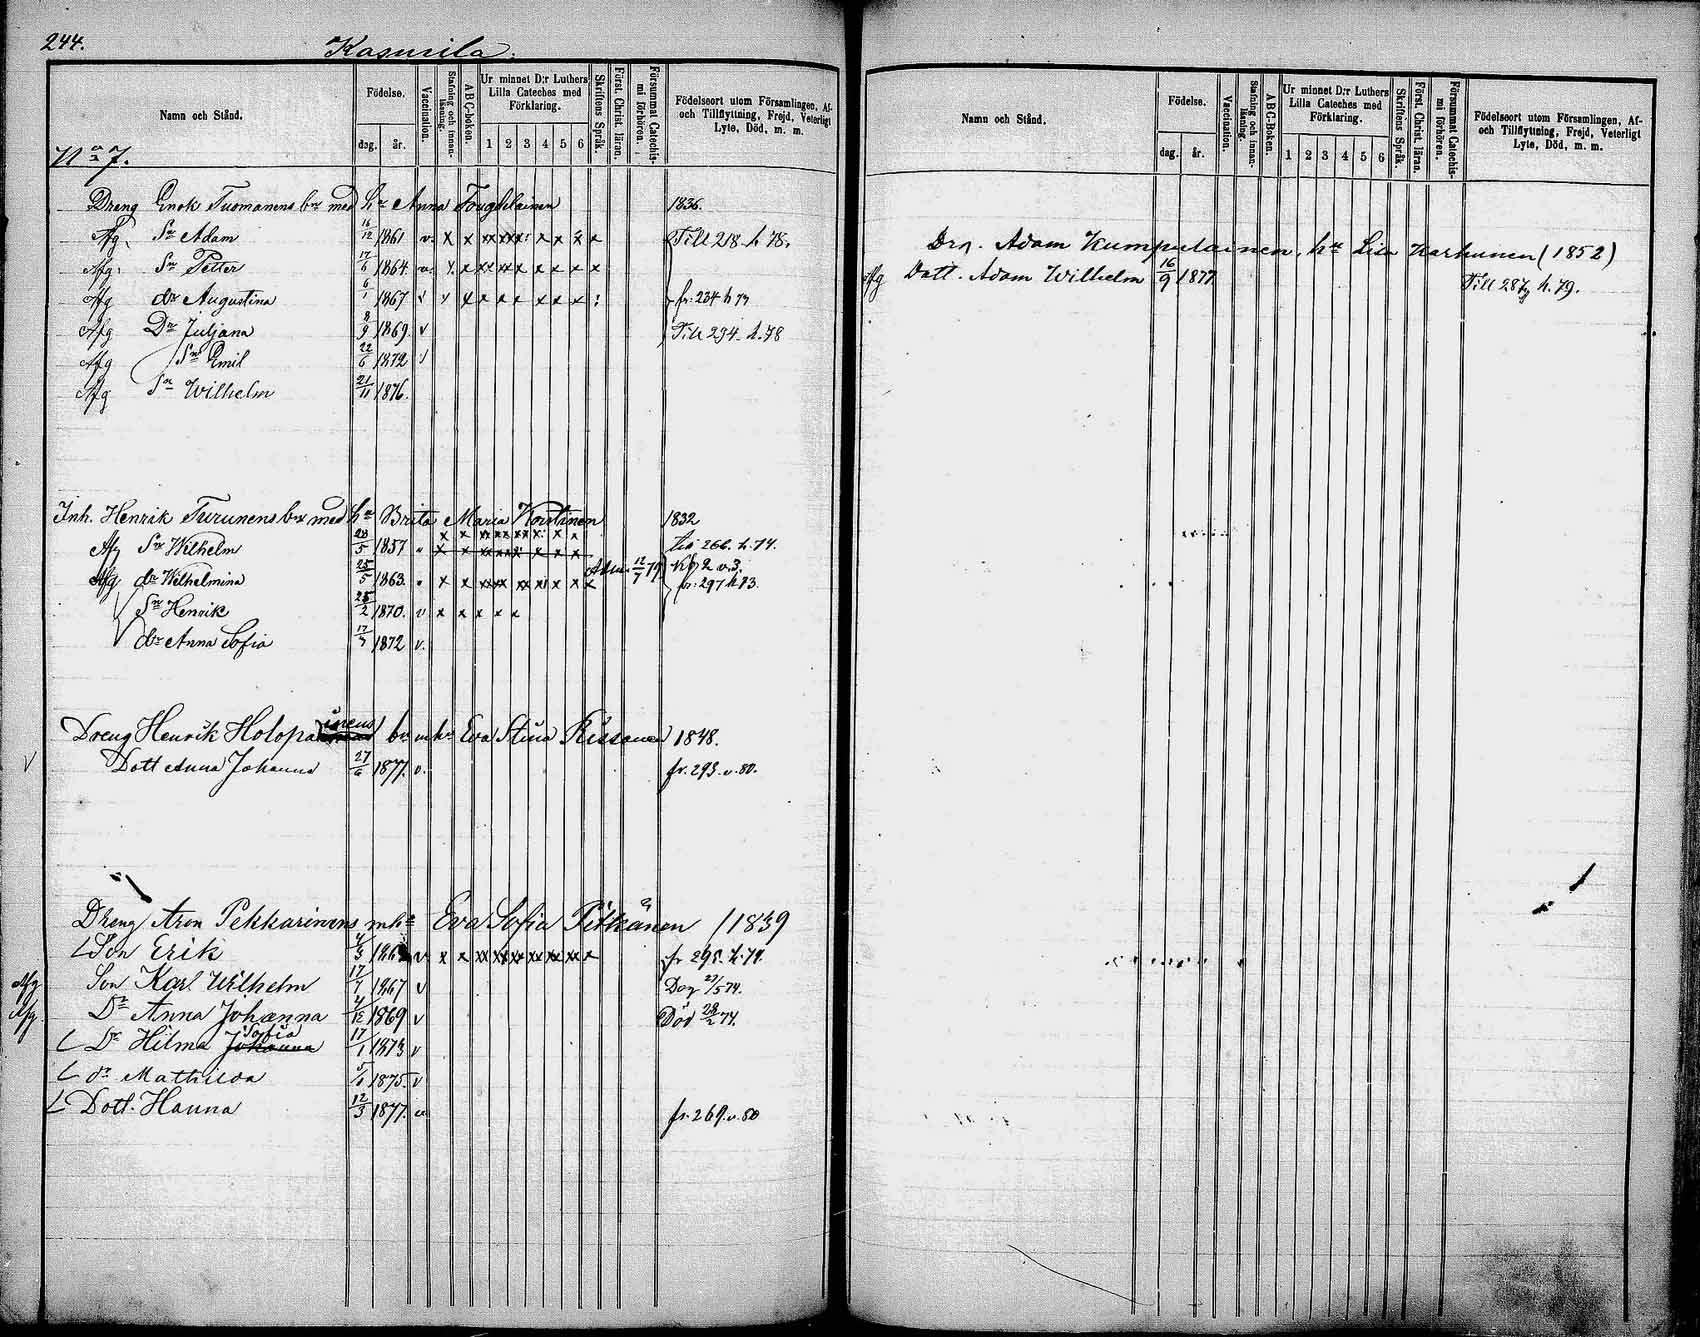 244.
Kasurila.
Namn och Stånd.
Födelse.
dag. år.
Vaccination.
Stafning och innanläsning.
ABC-boken.
Ur minnet D:r Luthers Lilla Cateches med Förklaring.
1 2 3 4 5 6
Skriftens Språk.
Först. Christ. läran.
Försummat Catechismi förhören.
Födelseort utom Församlingen, Af- och Tillflyttning, Frejd, Veterligt Lyte, Död, m. m.
No 7.
Dreng Enok Tuomanens br med hu Anna 1836.
Afg. Sn Adam 16/12 1861 v. x x xx xx x x x x Till 218. h. 78.
Afg. Sn Petter 17/6 1864 v. x x xx xx x x x x x
Afg dr Augustina 6/1 1867 v x x x x x x x x fr. 234 h 77
Afg Dr Juljana 8/9 1869. v Till 294. h. 78
Afg Sn Emil 22/6 1872 v
Afg Sn Wilhelm 21/11 1876.
Inh. Henrik Turunens br med hu Brita Maria 1832
Afg Sn Wilhelm 5 1857 266. h. 74.
Afg dr Wilhelmina 25/5 1863. x x xx xx x x x x x Adm. 12/7 79. fr. 297 h 73.
Sn Henrik 25/2 1870. v x x x x x
dr Anna Sofia 17/7 1872 v.
Dreng Henrik Holopainens br m hu Eva Stina Rissanen 1848.
v Dott Anna Johanna 27/6 1877. v. fr. 293. v. 80.
Dreng Aron Pekkarinens m hu Eva Sofia Pitkänen /1839
Son Erik v x x xx xx xx xx xx xx x fr 295. h. 79.
Afg Son Karl Wilhelm 17/7 1867 v
Afg Dr Anna Johanna 4/12 1869 v Död 28/2 74.
Dr Hilma Johanna Sofia 17/1 1873 v
dr Mathilda 1875. v
Dott. Hanna 12/3 1877. v fr. 269. v. 80
Namn och Stånd.
Födelse.
dag. år.
Vaccination.
Stafning och innanläsning.
ABC-Boken.
Ur minnet D:r Luthers Lilla Cateches med Förklaring.
1 2 3 4 5 6
Skriftens Språk.
Först. Christ. läran.
Försummat Catechismi förhören.
Födelseort utom Församlingen, Af- och Tillflyttning, Frejd, Veterligt Lyte, Död, m. m.
Drg. Adam Kumpulainen, hu Lisa Karhunen (1852)
Afg Dott. Adam Wilhelm 16/9 1877 Till 287 h. 79.